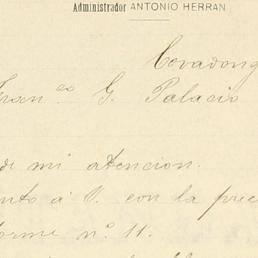 Administrador ANTONIO HERRAN
Covadong
Fran.co G. Palacio
de mi atencion.
nto á V. con la prec
orme n.º 11.